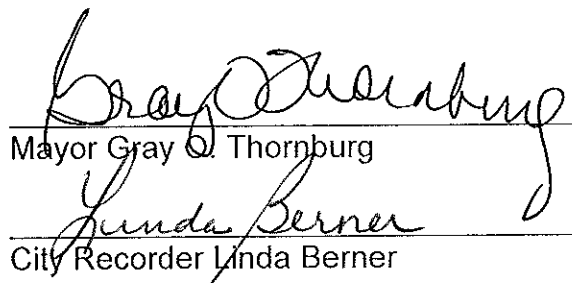 Gray O Thornburg
Mayor Gray O. Thornburg
Linda Berner
City Recorder Linda Berner